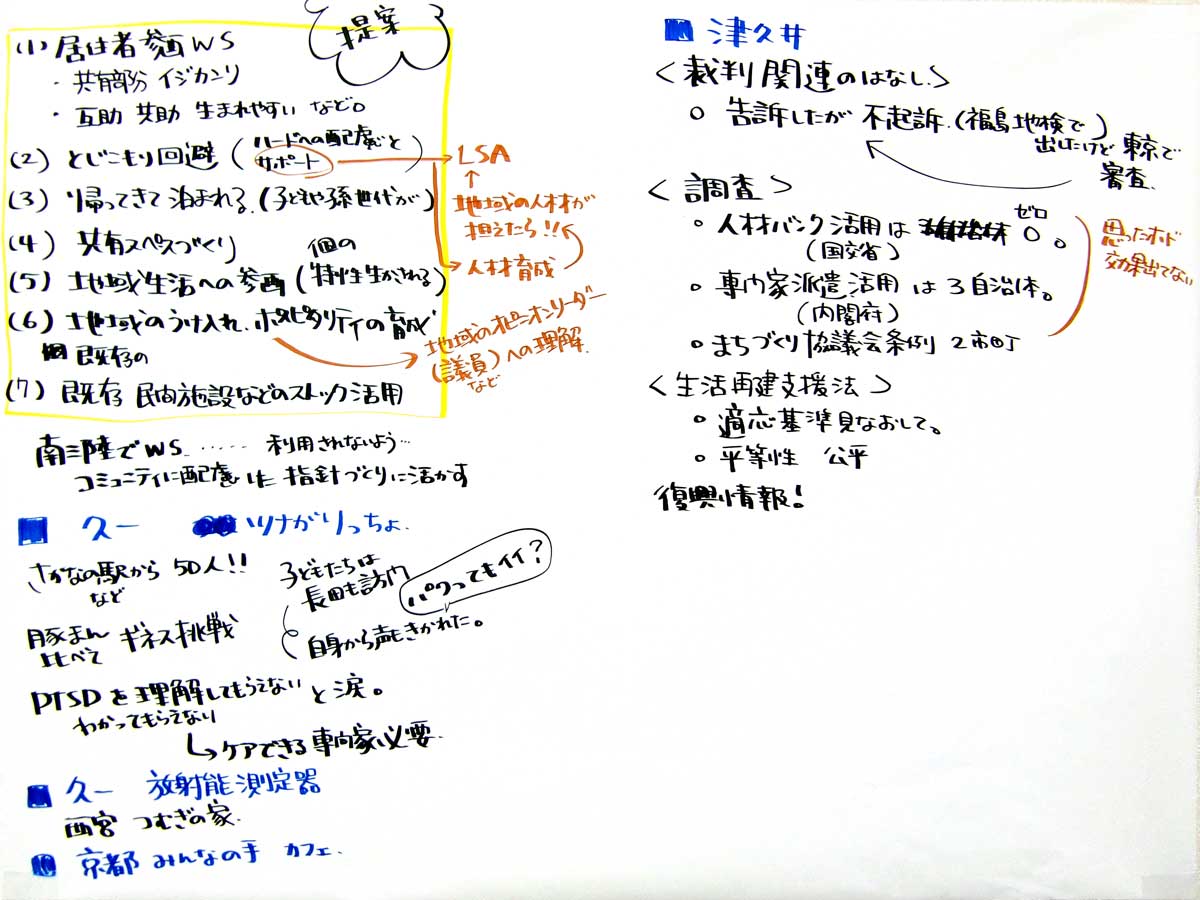 提案
(1) 居住者参画WS
・共有部分 イジカンリ
・互助 共助 生まれやすい など。
(2) とじこもり回避 (ハードへの配慮ごと
サポート)
→LSA
↑
地域の人材が
担えたら!!
→人材育成
(3) 帰ってきて 泊まれる。(子どもや孫世代が)
(4) 共有スペースづくり
(5) 地域生活への参画 (個の
特性生かされる)
(6) 地域のうけ入れ、ホスピタリティの育成
→地域のオピニオンリーダー
(議員)への理解
など
既存の
(7) 既存 民間施設などのストック活用
南三陸でWS …… 利用されないよう…
コミュニティに配慮した 指針づくりに活かす
■ 久一 ツナがりっちょ.
さかなの駅から 50人!!
など
子どもたちは
長田も訪問
パクってもイイ?
自身から声もきかれた。
豚まん ギネス挑戦
比べて
PTSDを理解してもらえない と涙。
わかってもらえない
↳ケアできる専門家必要.
■ 久一 放射能測定器
西宮 つむぎの家.
■ 京都 みんなの手 カフェ.
■ 津久井
<裁判関連のはなし>
○ 告訴したが 不起訴.(福島地検で)
出したけど 東京で
審査.
<調査>
○ 人材バンク活用は ゼロ 0。
(国交省)
○ 専門家派遣活用 は 3自治体。
(内閣府)
○ まちづくり協議会条例 2市町
思ったホド
効果出てない
<生活再建支援法>
○ 適応基準見なおして。
○ 平等性 公平
復興情報!